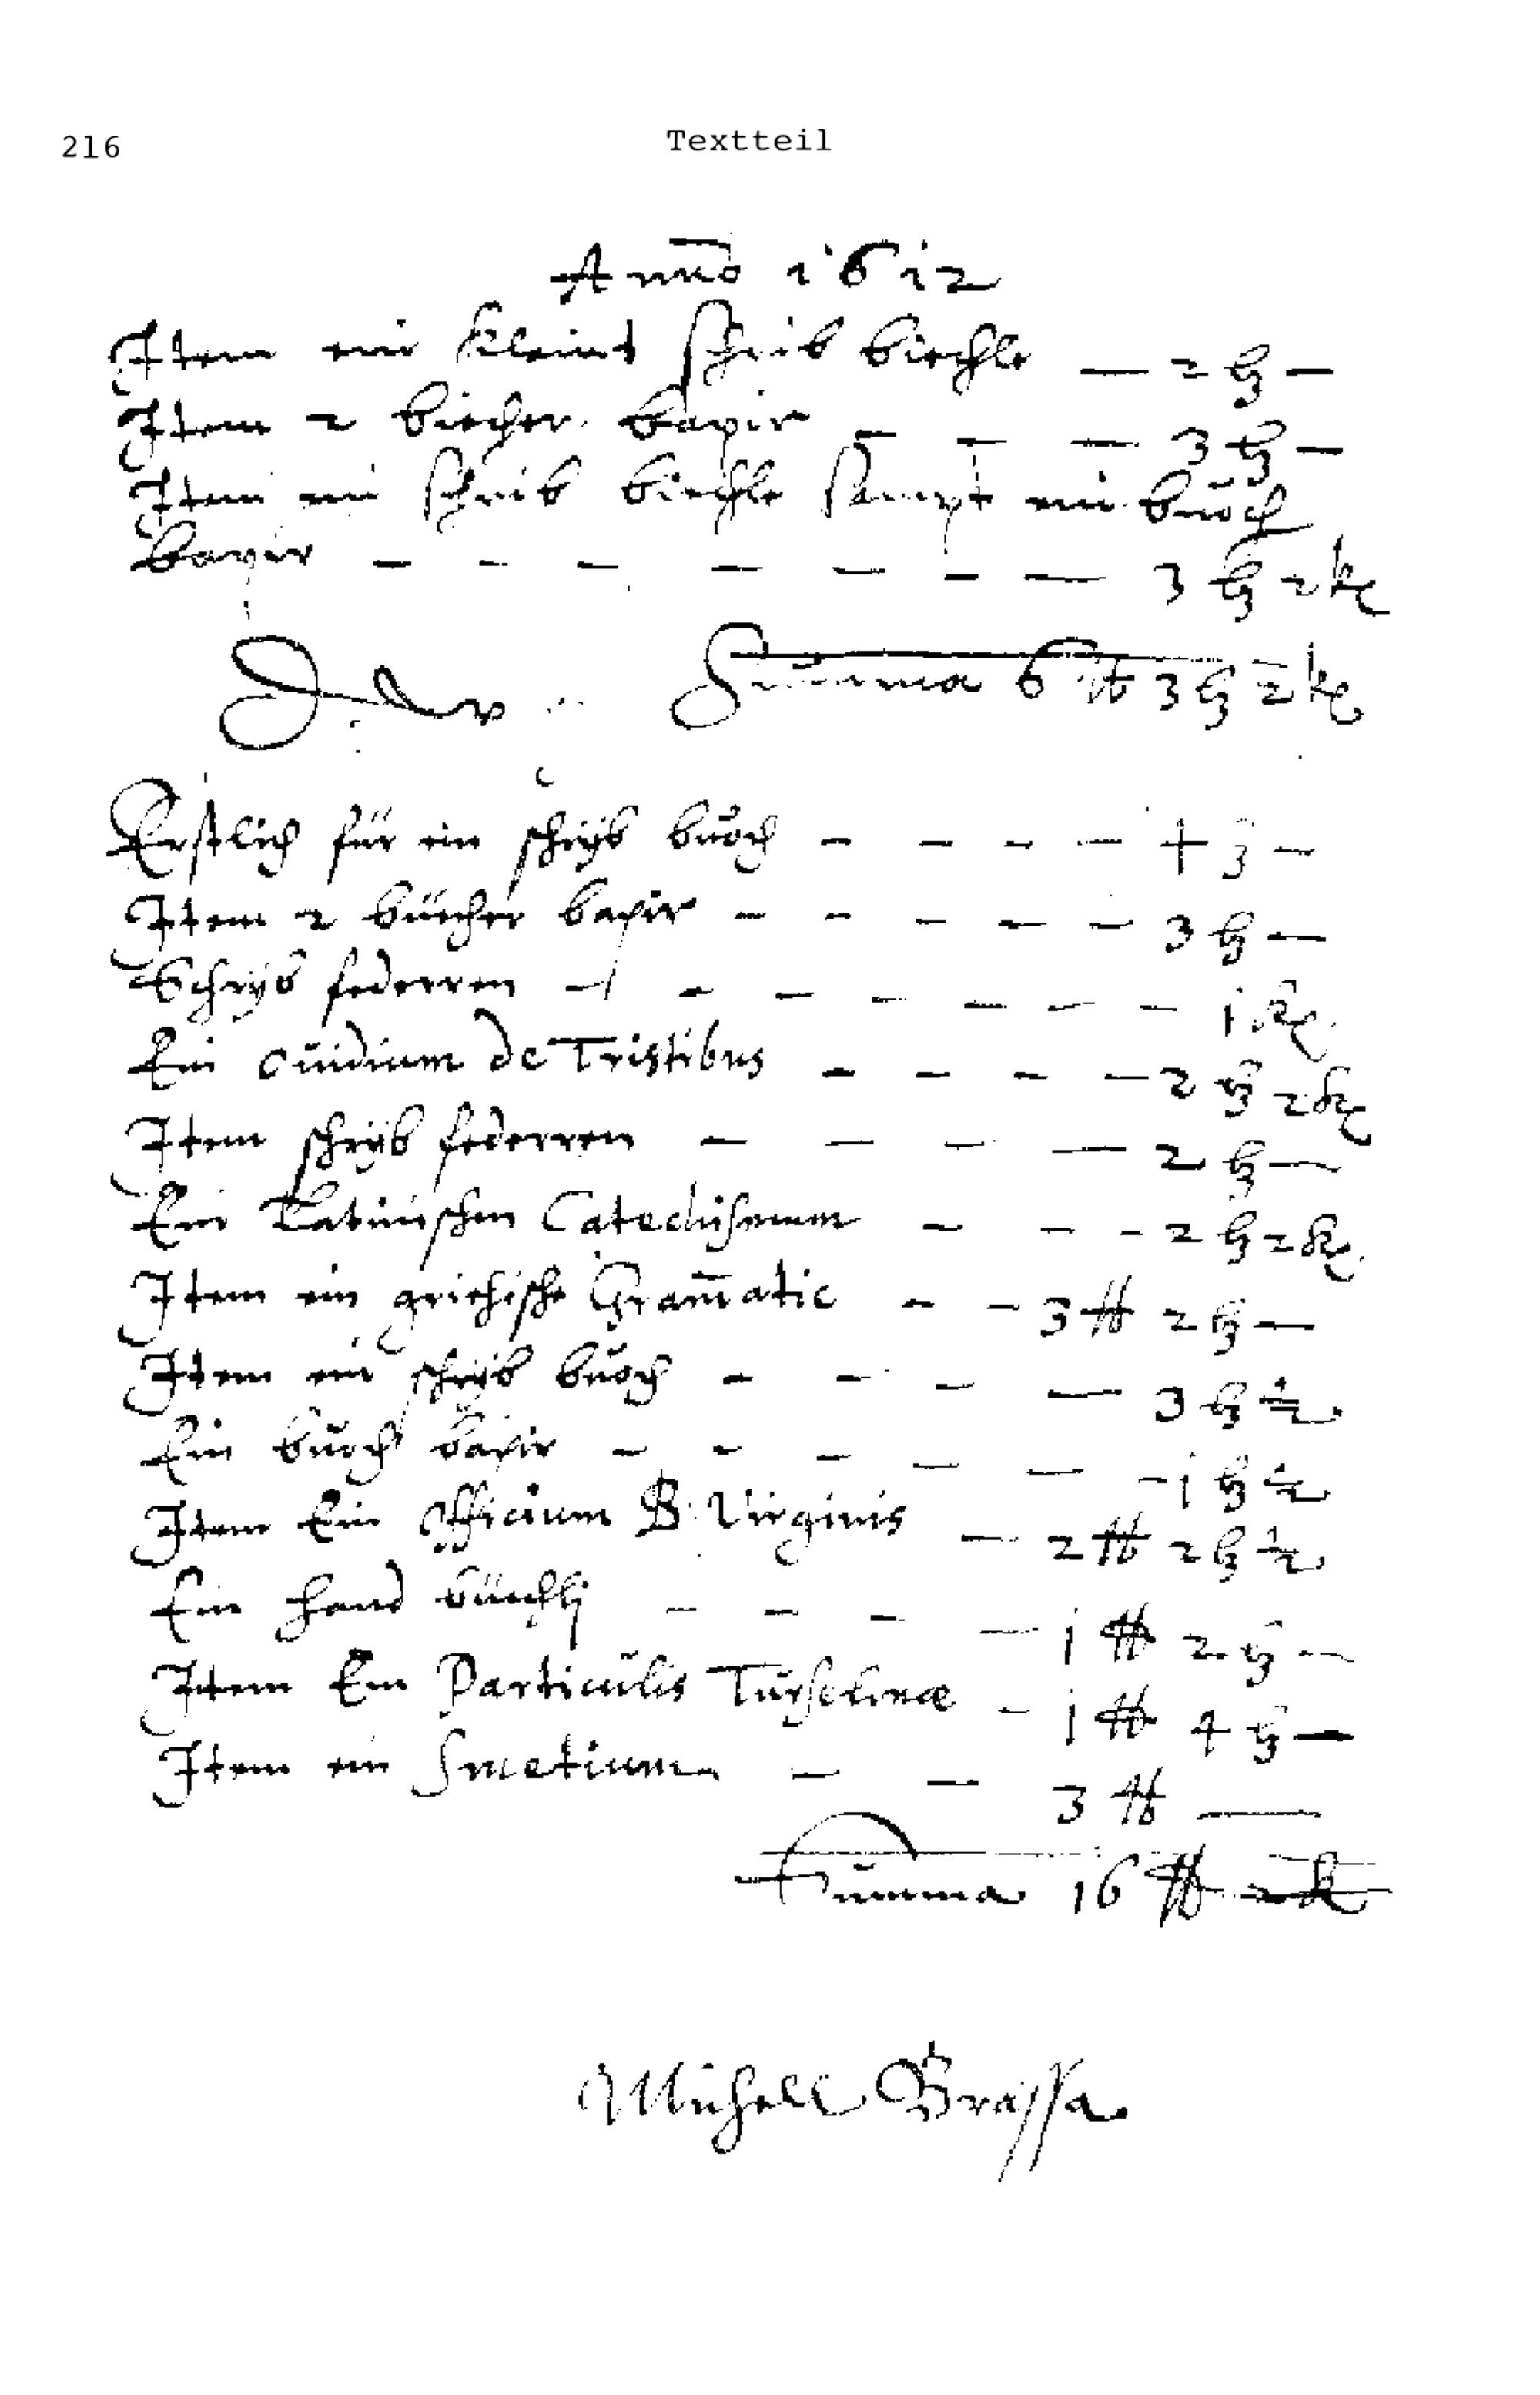 216 Textteil
Anno 1612
Item ein kleines schrib biechle — 2 ß —
Item 2 biecher bapir — — — 3 ß —
Item ein schrib biechle sampt ein buoch
bapir — — — — — — — 3 ß 2 k
Summa 6 ℔ 3 ß 2 k
Erstlich für ein schryb buoch — — — — 4 ß —
Item 2 büecher bapir — — — — — 3 ß —
Schryb federren — — — — — — — 1 k
Ein ouidium de Tristibus — — — — 2 ß 2 k
Item schryb federren — — — — 2 ß —
Ein Latinischen Catechismum — — - 2 ß 2 k
Item ein griechische Grammatic — — 3 ℔ 2 ß —
Item ein schryb buoch — — — — 3 ß ½
Ein buoch bapir — — — — — - 1 ß ½
Item Ein officium B. Virginis — 2 ℔ 2 ß ½
Ein hand büechly — — — — 1 ℔ 2 ß —
Item Ein Particulis Turselinæ — 1 ℔ 4 ß —
Item ein Smetium — — 3 ℔ —
Summa 16 ℔ 2 k
Michell Brassa